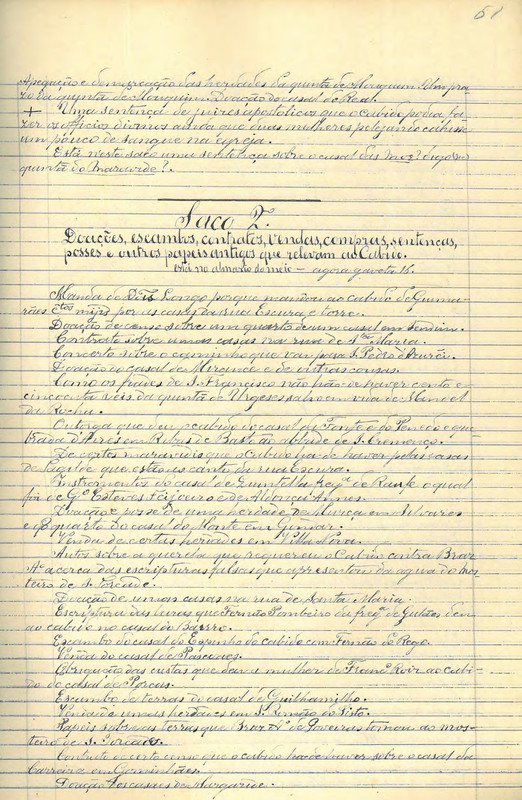 51
Apegação e demarcação das herdades da quinta de Mouquim. Um pra-
zo da quinta de Mouquim. Doação do casal do Real.
+ Uma sentença de juizes apostolicos que o cabido podia fa-
zer os officios divinos ainda que duas mulheres pelejando cahisse
um pouco de sangue na egreja.
Está neste saco uma sentença sobre o casal das digo no
quinta do
Saco 2.
Doações, escambos, contratos, vendas, compras, sentenças,
posses e outros papeis antigos que relevam ao Cabido.
está no almario do meio — agora gaveta 15.
Manda do Longo porque mandou ao cabido de Guima-
rães por as casas da rua Escura e torre.
Doação de censo sobre um quarto de um casal em Sendim.
Contrato sobre umas casas na rua de Sta Maria.
Concerto sobre o caminho que vai para S. Pedro d'Azurei.
Doação do casal de e de outras cousas.
Como os frades de S. Francisco não hão de haver cento e
cincoenta réis da quinta de Urgeses salvo em vida de Manoel
da Rocha.
Outorga que deu o cabido do casal da Fonte e do Penedo e que-
brada d'Airós em Ribas de Basto ao abbade de S. Cremenço.
De certos maravidis que o Cabido ha de haver pelas casas
de que estão no canto da rua Escura.
Instrumentos do casal de Quintella fregª de Ranfe o qual
foi de Gº Esteves e de Aldonça Annes.
Doação e posse de uma herdade de em Silvares
e do quarto do casal do Monte em Gominhães.
Venda de certas herdades em Villa Nova.
Autos sobre a querela que requereu o Cabido contra Braz
Aº acerca das escripturas falsas que apresentou da agua do mos-
teiro de S.
Doação de umas casas na rua de Santa Maria.
Escriptura das leiras que Fernão Pombeiro da fregª de deu
ao cabido no casal do Bairro.
Escambo do casal do Espinho do cabido com Fernão do Rego.
Venda do casal de Pascoaes.
Obrigação das custas que deu a mulher de Francº Roiz ao cabi-
do do casal de Porcas.
Escambo de terras do casal de Guilhamilho.
Venda de umas herdades em S. Romão do
Papeis sobre as terras que Braz Aº de tomou ao mos-
teiro de S. Torcade.
Contrato de certo censo que o cabido ha de haver sobre o casal da
Carreira em Gominhães.
Doação dos casaes de Margaride.